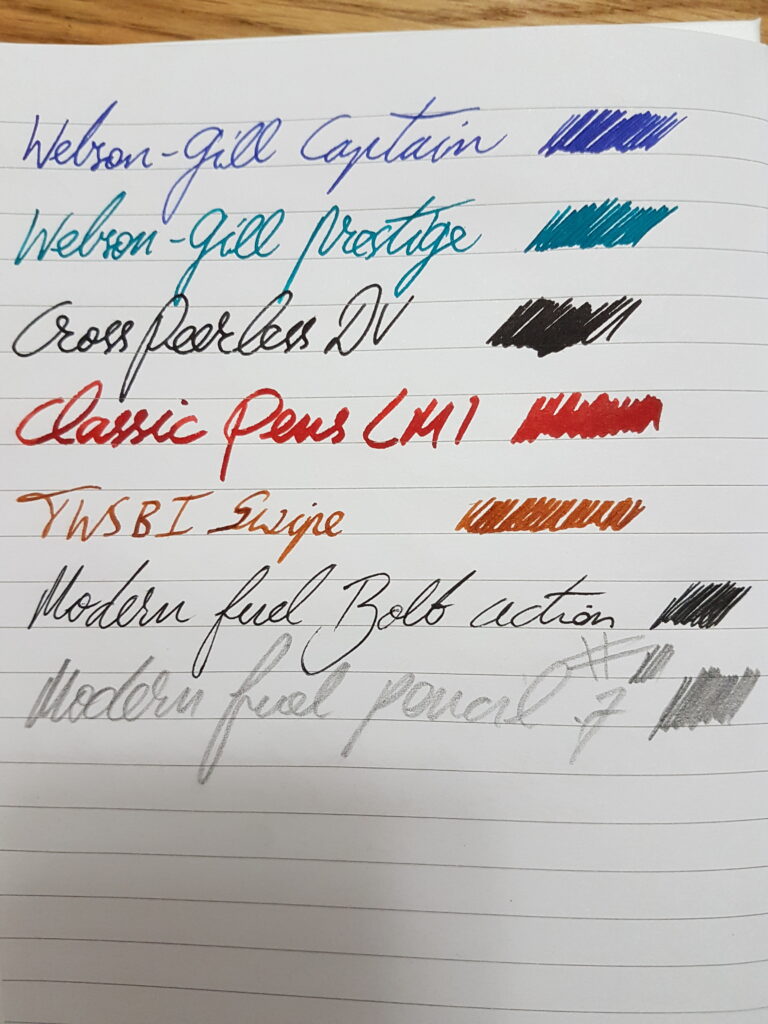 Webson-Gill Captain
Webson-Gill Prestige
Cross Peerless DV
Classic Pens LM1
TWSBI Swipe
Modern fuel Bolt action
Modern fuel pencil .7